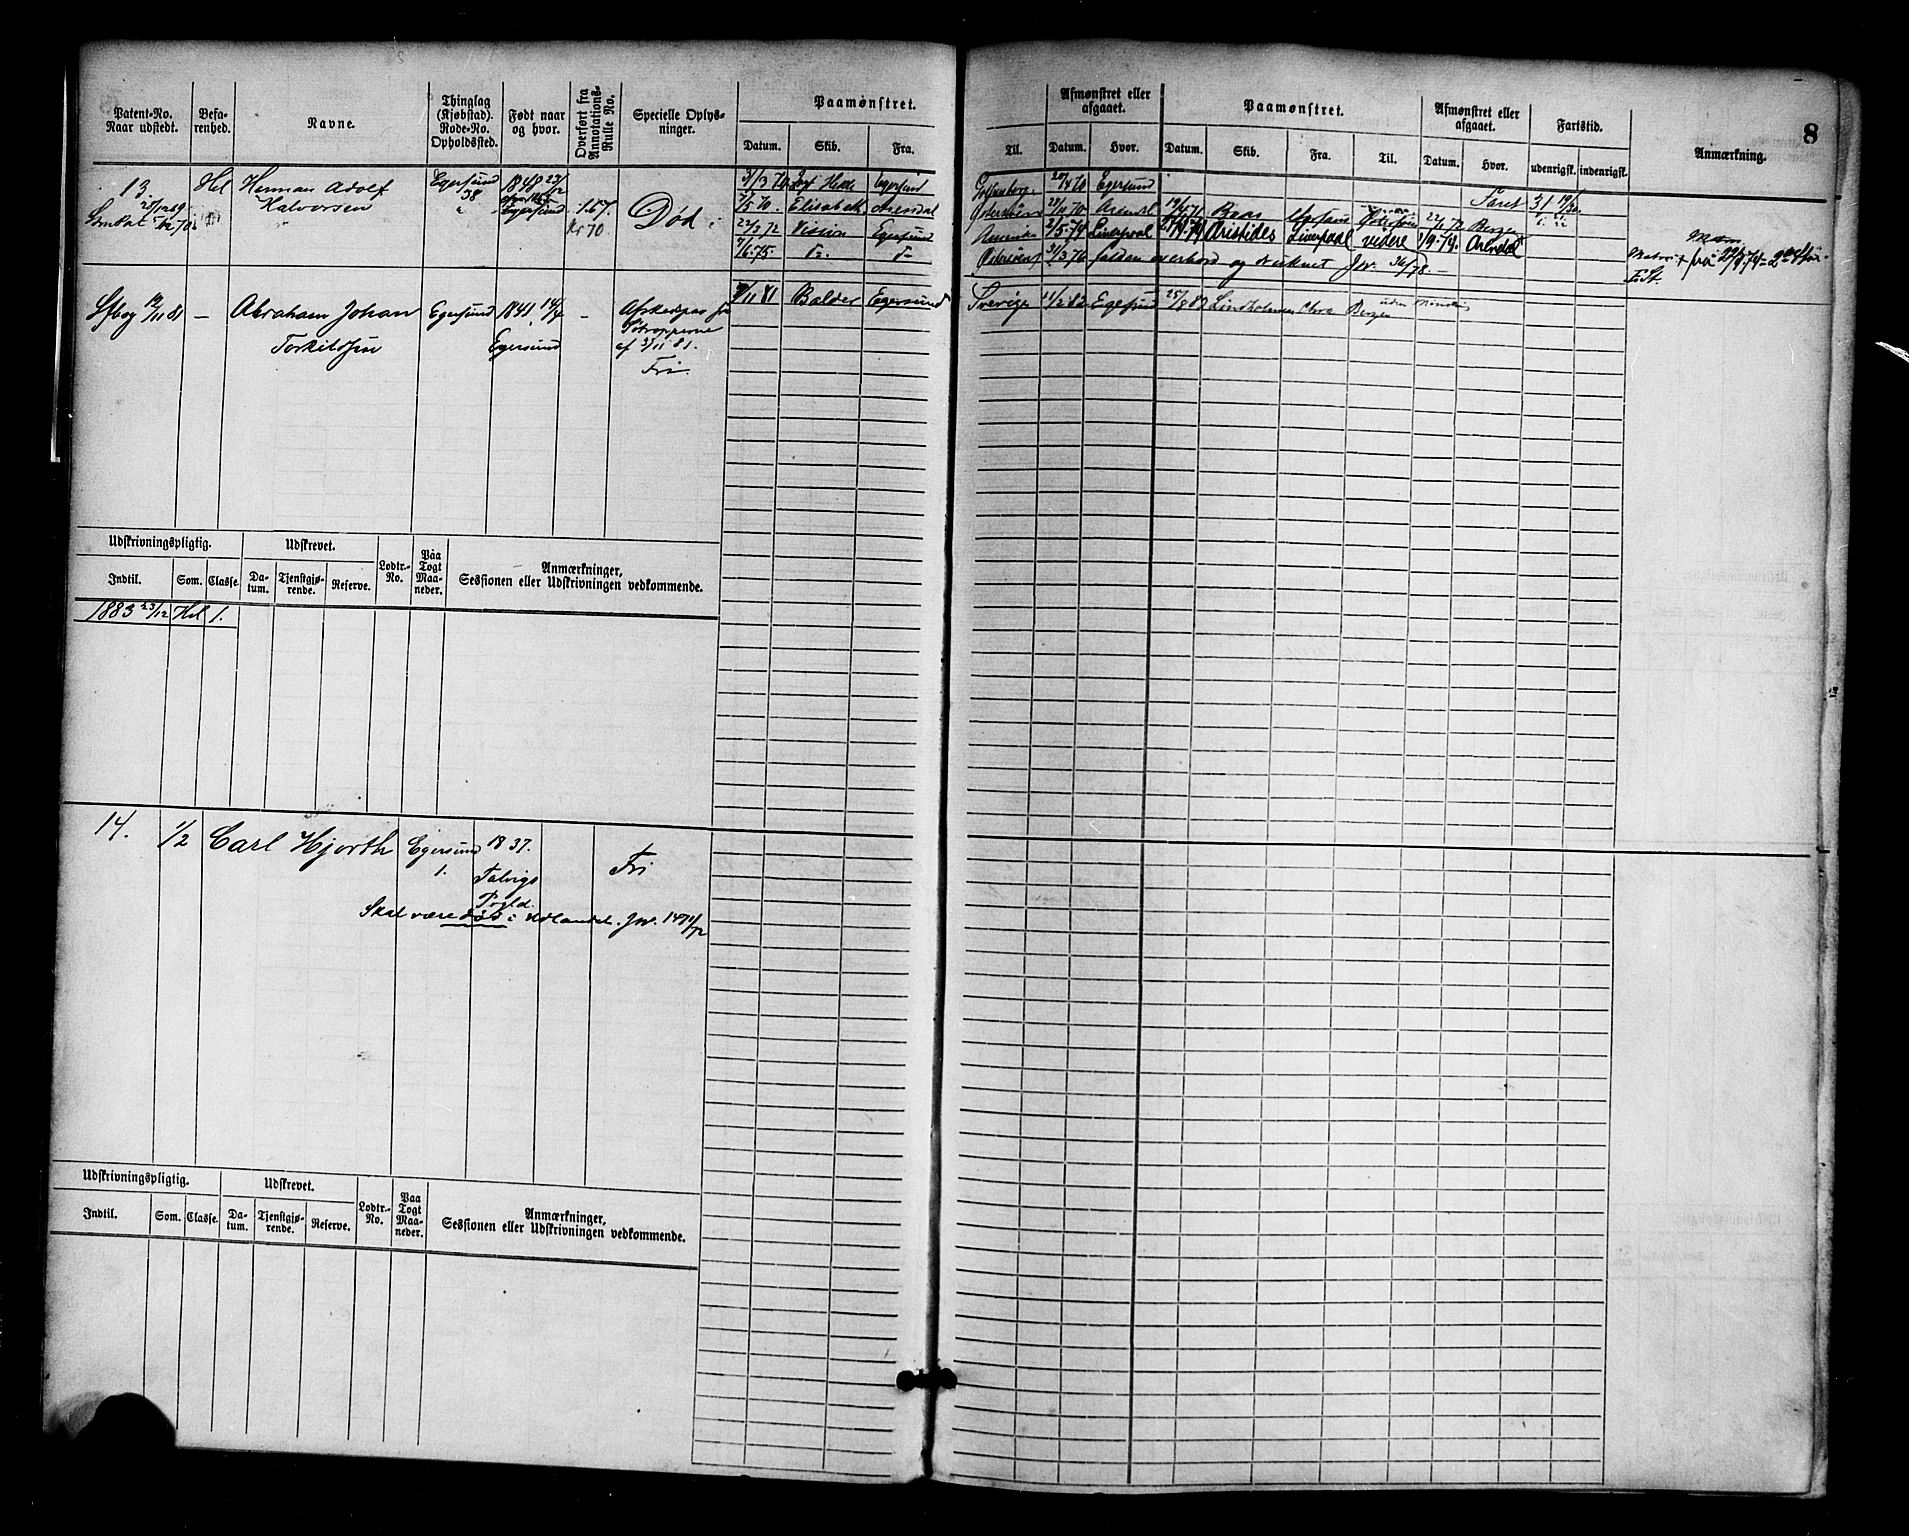 8
Patent-No. Naar udstedt.
Befa-renhed.
Navne.
Thinglag (Kjøbstad). Rode-No. Opholdssted.
Født naar og hvor.
Overført fra Annotations-Rulle No.
Specielle Oplys-ninger.
Paamønstret.
Datum. Skib. Fra. Til.
Afmønstret eller afgaaet.
Datum. Hvor.
Paamønstret.
Datum. Skib. Fra. Til.
Afmønstret eller afgaaet.
Datum. Hvor.
Fartstid.
udenrigsk. indenrigsk.
Anmærkning.
13.
Hel
Herman Adolf
Halvorsen
Egersund
38
1848 23/12
Egersund
157.
Død.
Egersund
Gothenborg
Egersund
7/5 70. Elisabeth Arendal
Arendal
22/3 72 Vission Egersund
Amerika
2/5.74 Liverpool
Aristides Liverpool videre 1/9.74. Arendal
Bergen
Østersøen 31/3 76 falden overbord og druknet Jw. 36/78.
Abraham Johan
Torkildsen
Egersund
1841
Egersund
Afskedspas fra
af 3/11 81.
Fri.
9/11 81 Balder Egersund
Sverige 11/2 82 Egersund 25/8 83 Lindholmen Bergen
Udskrivningspligtig.
Indtil. Som. Classe.
Udskrevet.
Da-tum. Tjenstgjø-rende. Reserve.
Lodtr.-No.
Paa Togt Maa-neder.
Anmærkninger,
Sessionen eller Udskrivningen vedkommende.
1883 23/12 Hel 1.
14.
1/2
Carl Hjorth
Egersund
1.
1837.
Talvigs
Prgld.
Fri
Skal være død i Udlandet. Jw.
Udskrivningspligtig.
Indtil. Som. Classe.
Udskrevet.
Da-tum. Tjenstgjø-rende. Reserve.
Lodtr.-No.
Paa Togt Maa-neder.
Anmærkninger,
Sessionen eller Udskrivningen vedkommende.